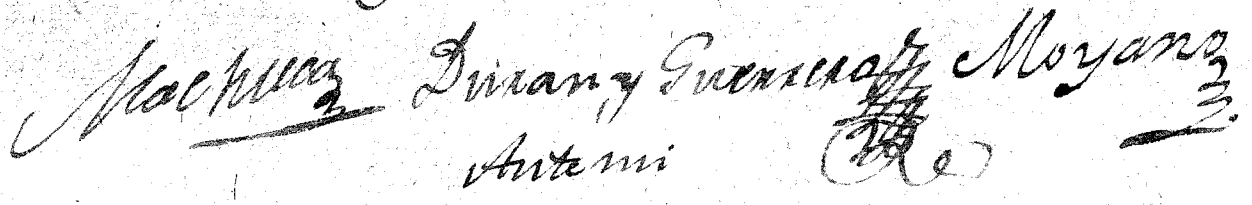 Machuca Duran y Guerrero Moyano
Antemi